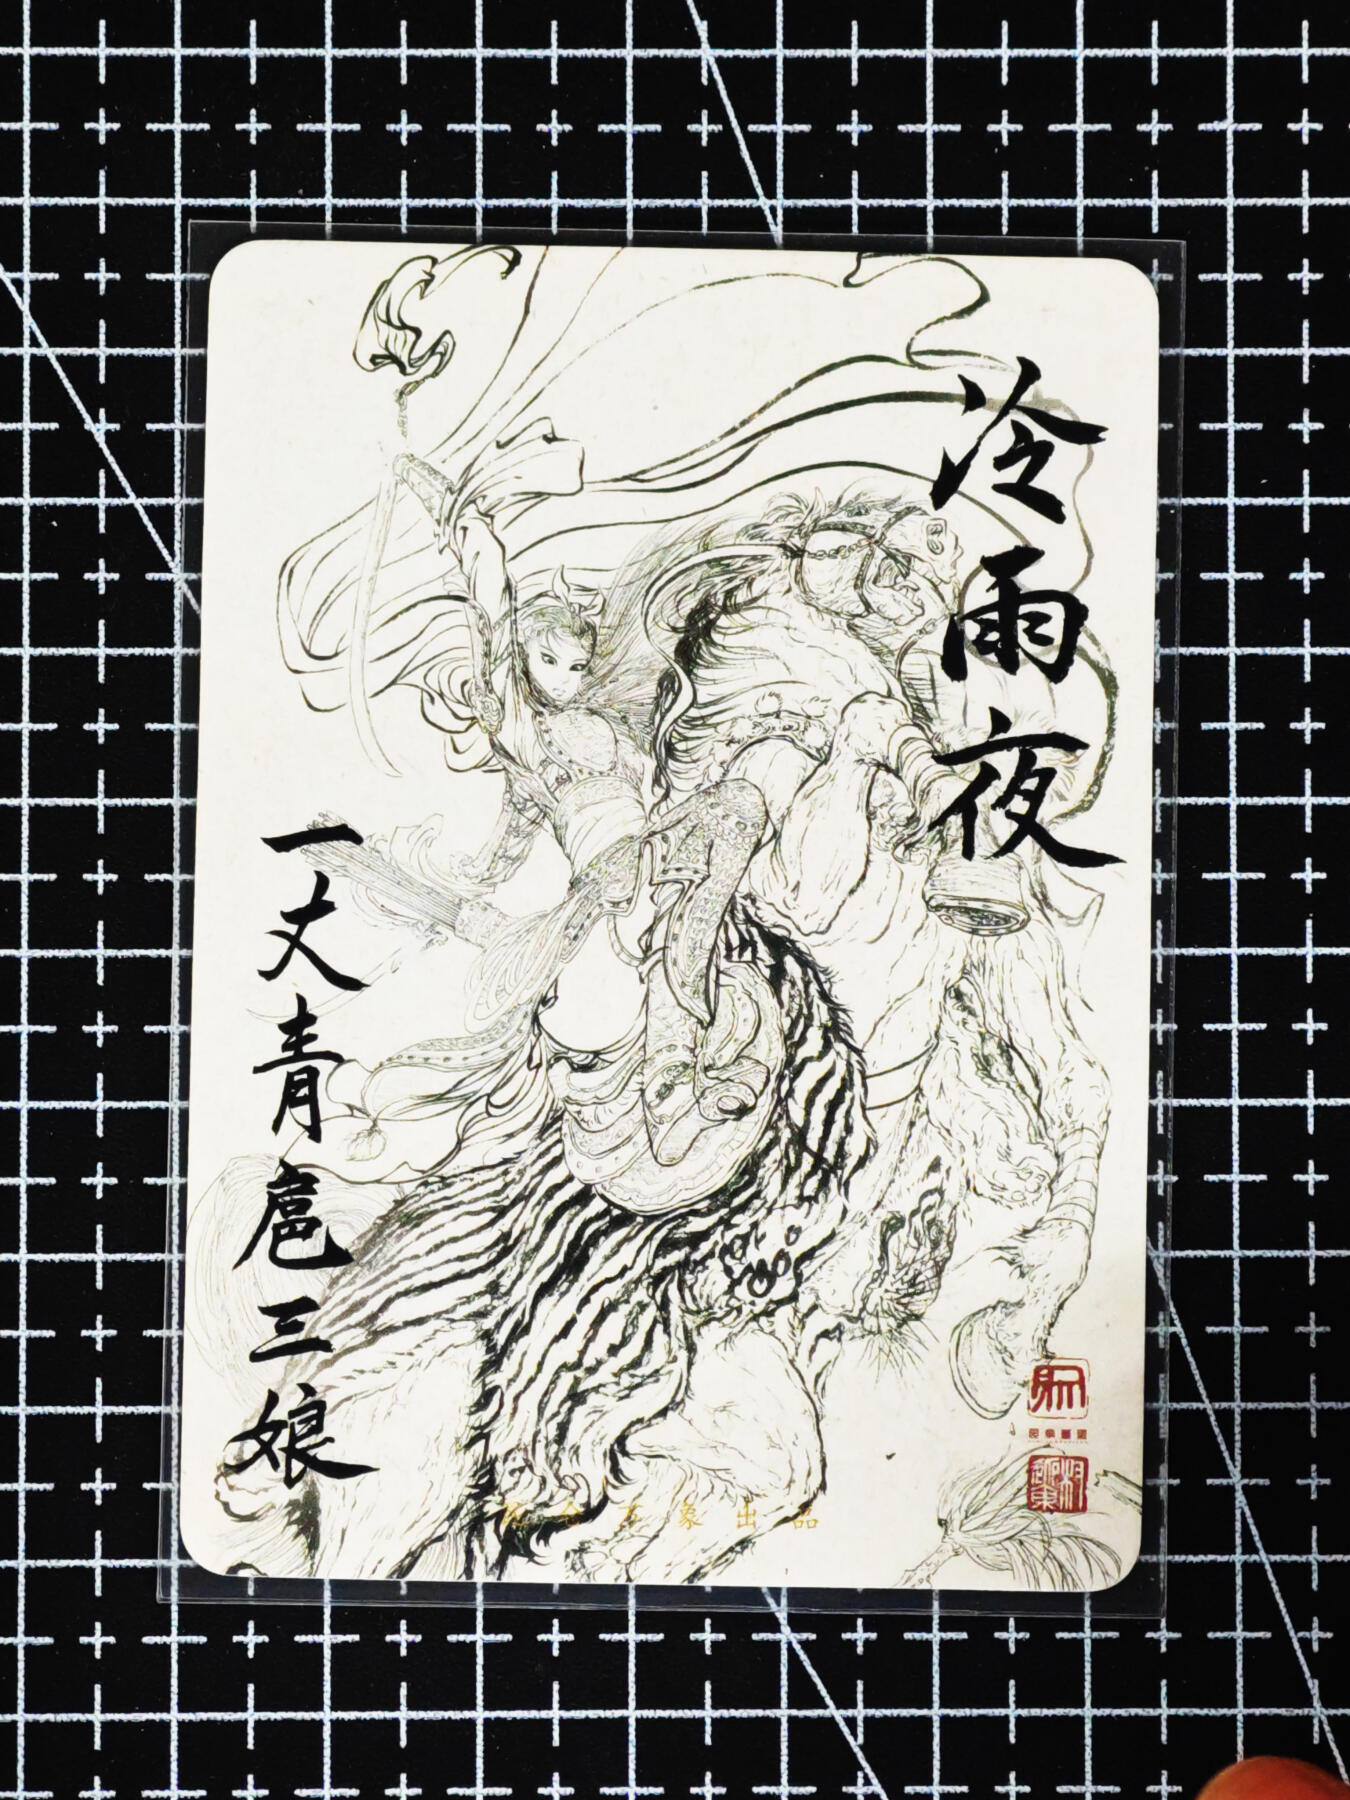 冷雨夜
一丈青扈三娘
万象出品